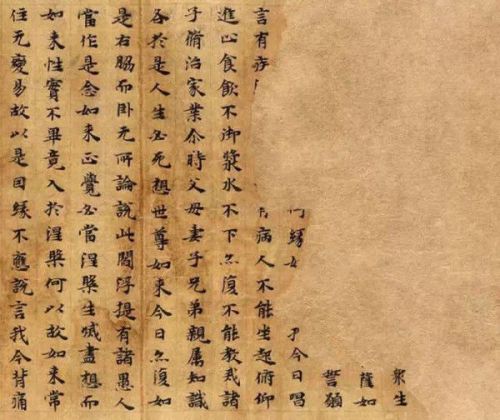 衆生
薩如
誓願
今日唱
何縁
言有疾 病人不能坐起俯仰
進止食飲不御漿水不下亦復不能教戒諸
子脩治家業尒時父母妻子兄弟親属知識
各於是人生必死想世尊如来今日亦復如
是右脇而卧无所論說此閻浮提有諸愚人
當作是念如来正覺必當涅槃生滅盡想而
如来性實不畢竟入於涅槃何以故如来常
住无變易故以是因緣不應說言我今背痛